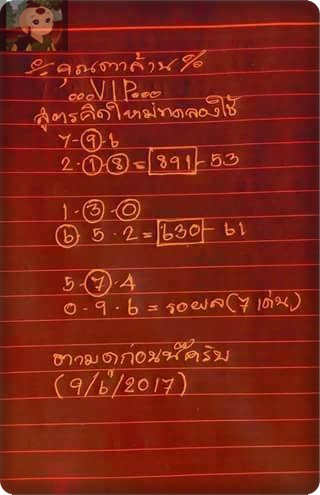 % คุณตาล้าน %
...VIP...
สูตรคิดใหม่ทดลองใช้
7-9-6
2-1-8=891-53
1-3-0
6 5-2=630-61
5-7-4
0-9-6=รอผล(7 เด่น)
ตามดูก่อนนะครับ
(9/6/2017)